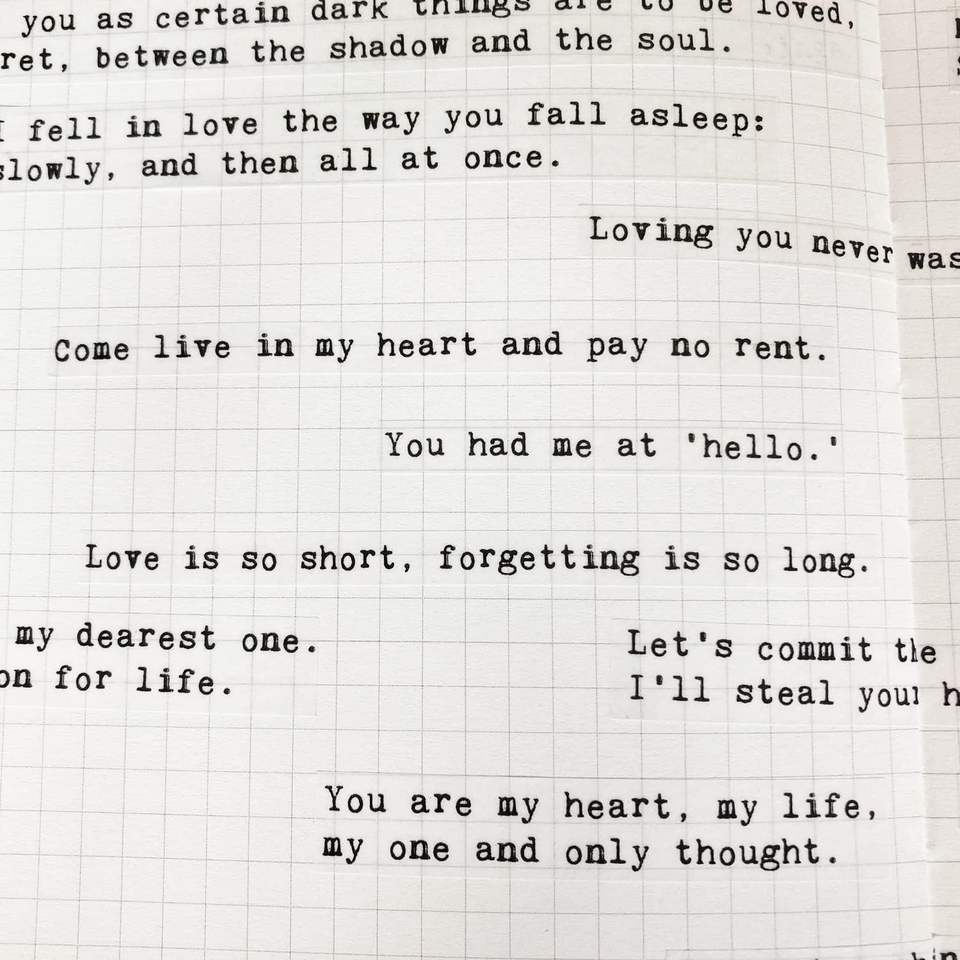 you as certain dark things are to be loved,
between the shadow and the soul.
I fell in love the way you fall asleep:
slowly, and then all at once.
Loving you never was
Come live in my heart and pay no rent.
You had me at 'hello.'
Love is so short, forgetting is so long.
my dearest one.
for life.
Let's commit the
I'll steal your
You are my heart, my life,
my one and only thought.